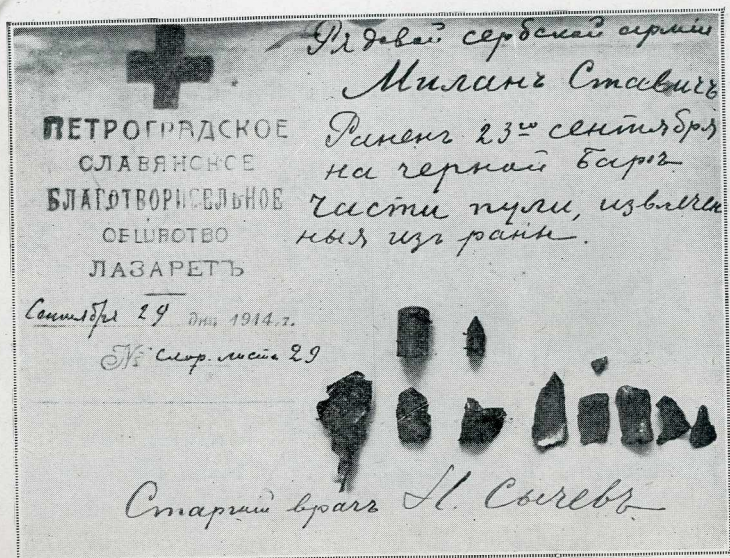 ПЕТРОГРАДСКОЕ
СЛАВЯНСКОЕ
БЛАГОТВОРИСЕЛЬНОЕ
ОБЩЕСТВО
ЛАЗАРЕТЪ
Сентября 29 дня 1914 г.
№ скор. листа 29
Рядовой сербской армiи
Миланъ Ставичъ
Раненъ 23го сентября
на черной Баръ
части пули, извлечен
ныя изъ раны.
Старшiй врачъ Н. Сычевъ